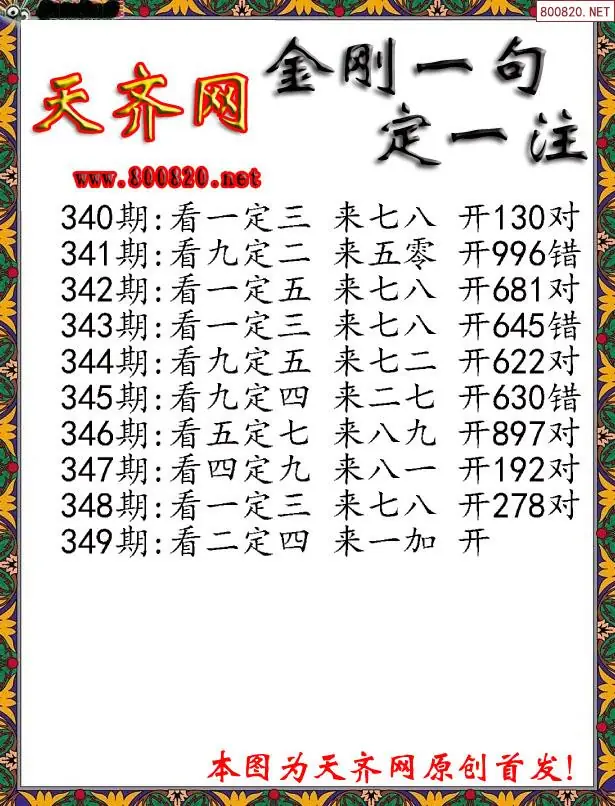 800820.NET
金刚一句
天齐网
定一注
www.800820.net
340期:看一定三 来七八 开130对
341期:看九定二 来五零 开996错
342期:看一定五 来七八 开681对
343期:看一定三 来七八 开645错
344期:看九定五 来七二 开622对
345期:看九定四 来二七 开630错
346期:看五定七 来八九 开897对
347期:看四定九 来八一 开192对
348期:看一定三 来七八 开278对
349期:看二定四 来一加 开
本图为天齐网原创首发!